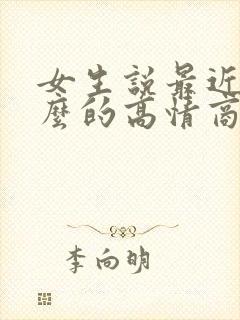 女生說最近
麼的高情商
李向明